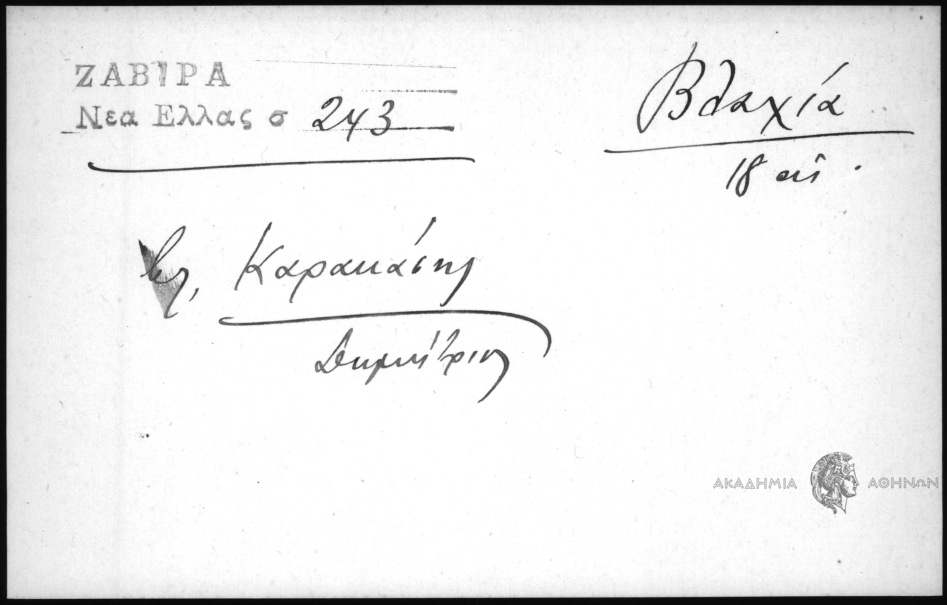 ΖΑΒΙΡΑ
Νεα Ελλας σ 243
Βλαχία
18 αἰ.
βλ, Καρακάσης
Δημήτριος
ΑΚΑΔΗΜΙΑ ΑΘΗΝΩΝ